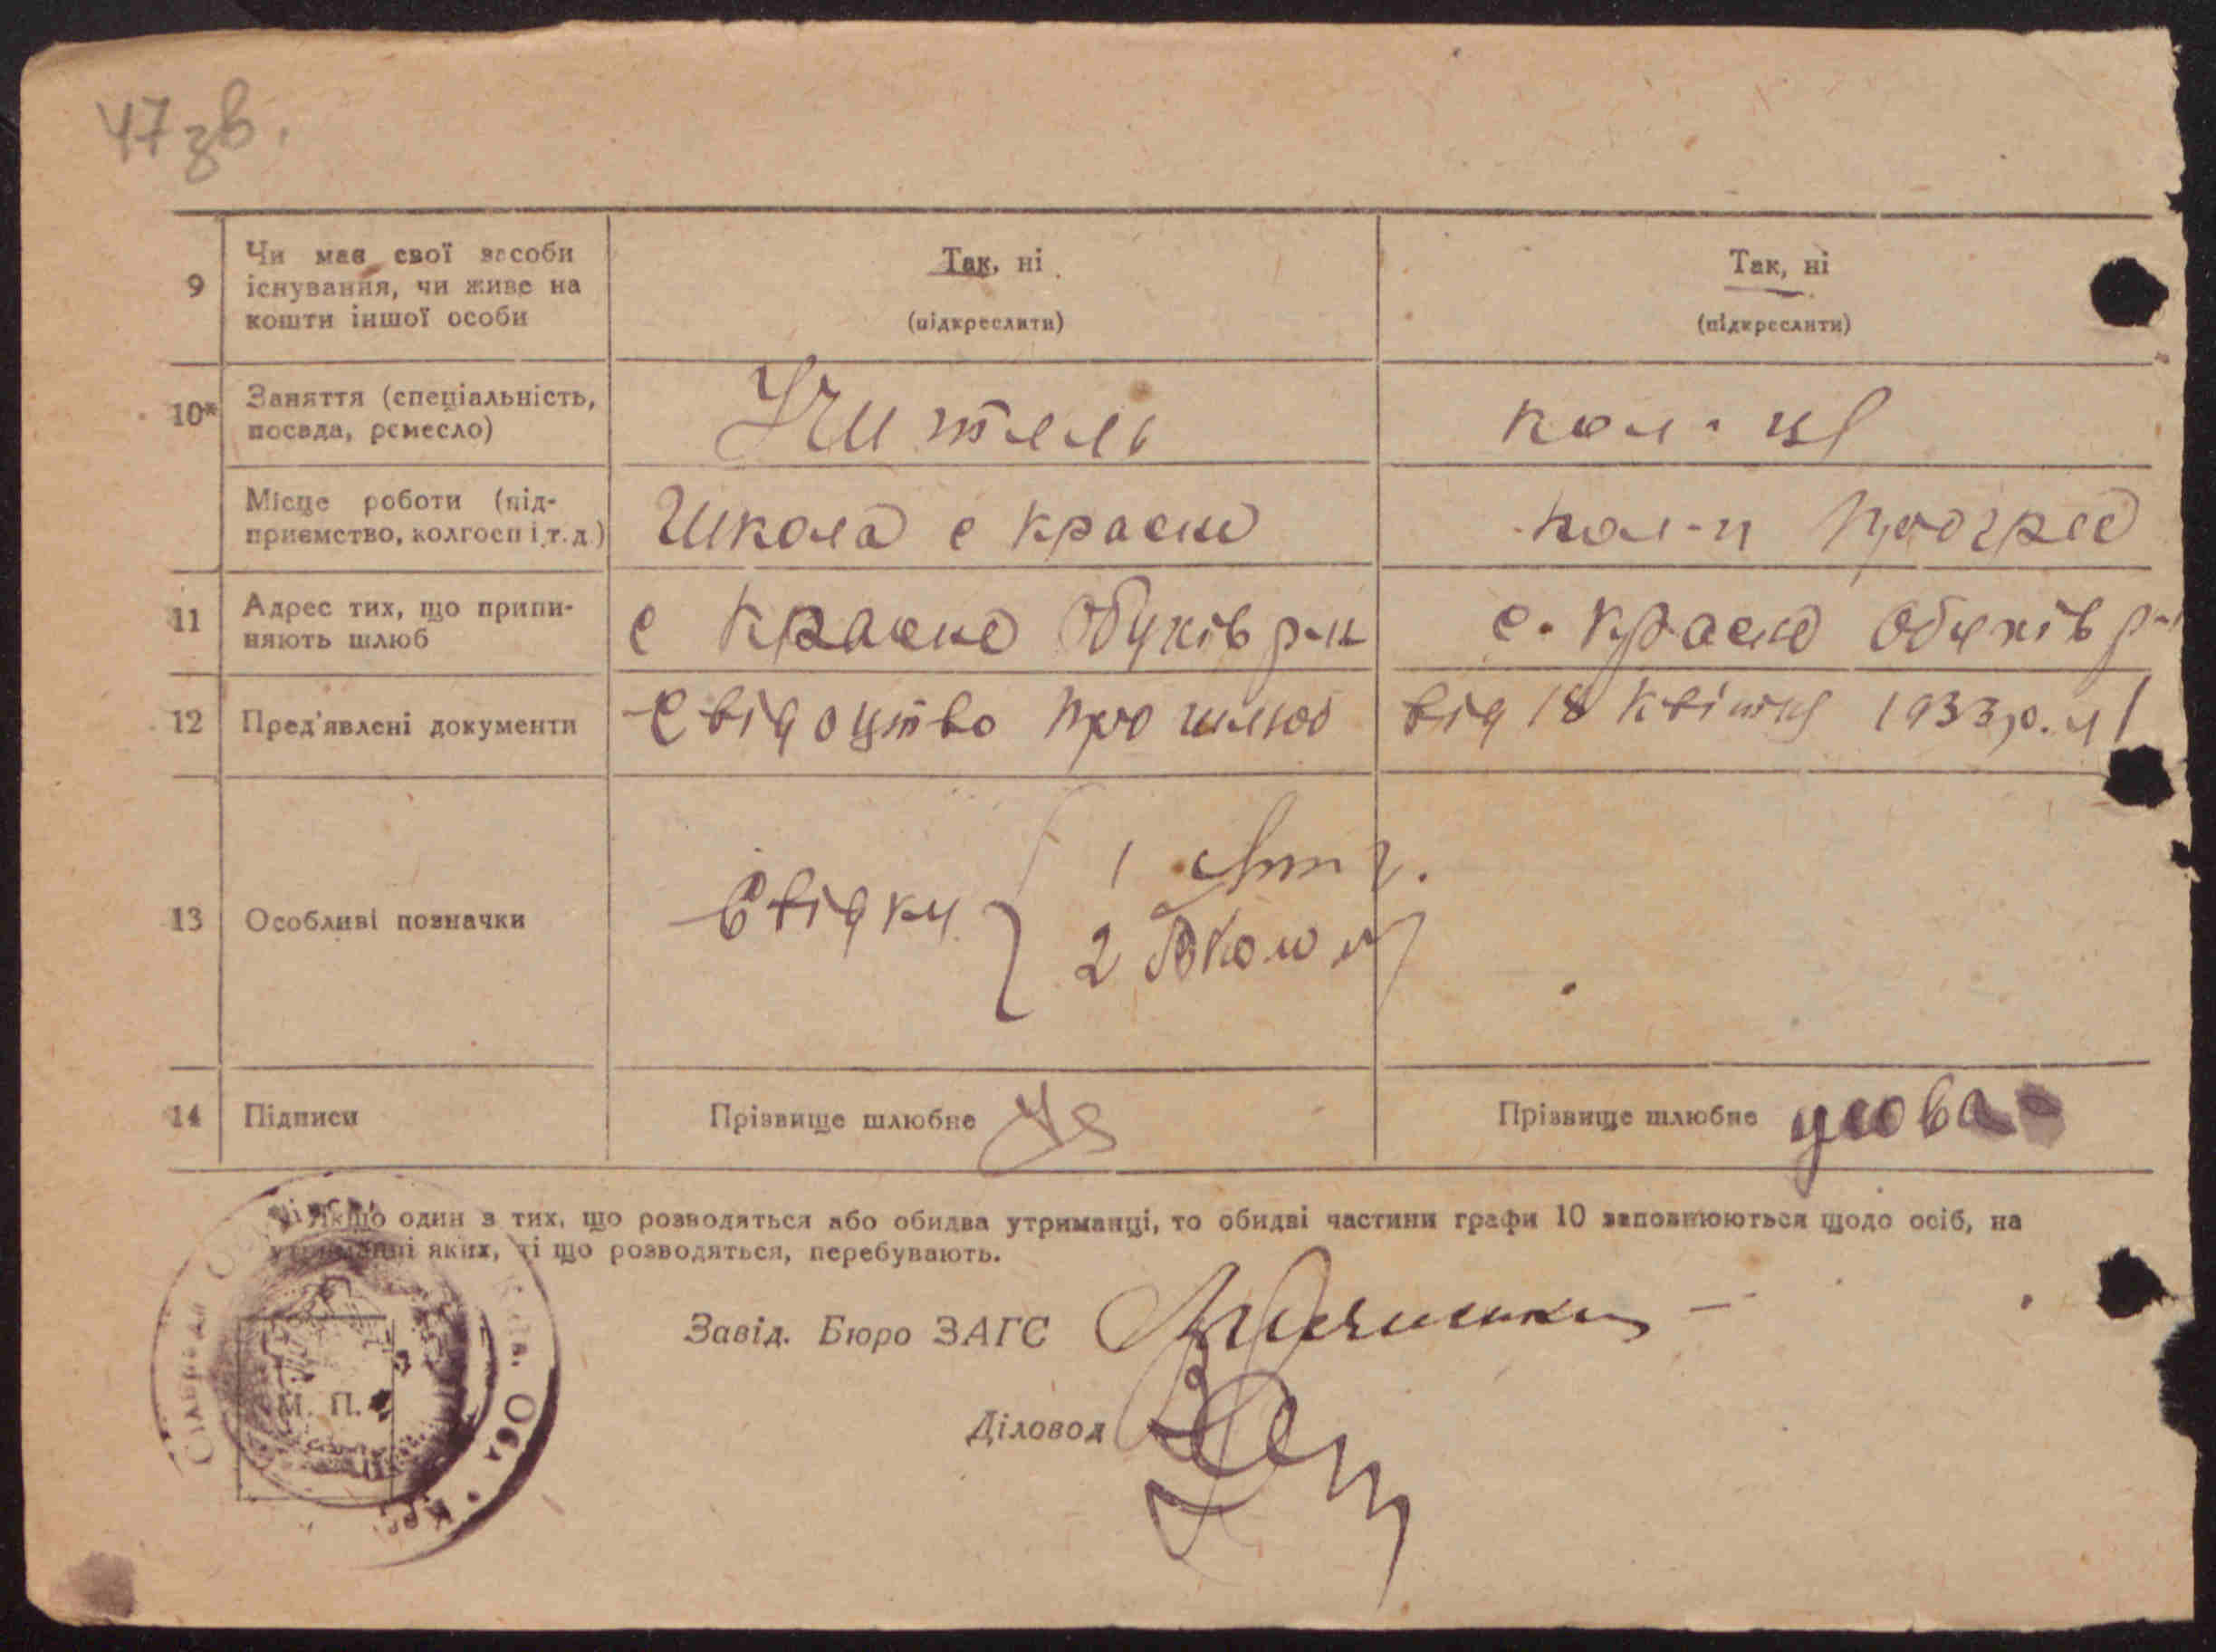 47 зв.
9 Чи має свої засоби існування, чи живе на кошти іншої особи
Так, ні
(підкреслити)
Так, ні
(підкреслити)
10* Заняття (спеціальність, посада, ремесло)
Учитель
Місце роботи (підприємство, колгосп і т. д.)
Школа с Красне
Прогрес
11 Адрес тих, що припиняють шлюб
с Красне Обухів р-н
с. Красне Обухів р-н
12 Пред'явлені документи
Свідоцтво про шлюб
від 18 квітня 1933 р.
13 Особливі позначки
Свідки
1
2
14 Підписи
Прізвище шлюбне
Прізвище шлюбне
* Якщо один з тих, що розводяться або обидва утриманці, то обидві частини графи 10 заповнюються щодо осіб, на
утриманні яких, ті що розводяться, перебувають.
Завід. Бюро ЗАГС
Діловод
М. П.